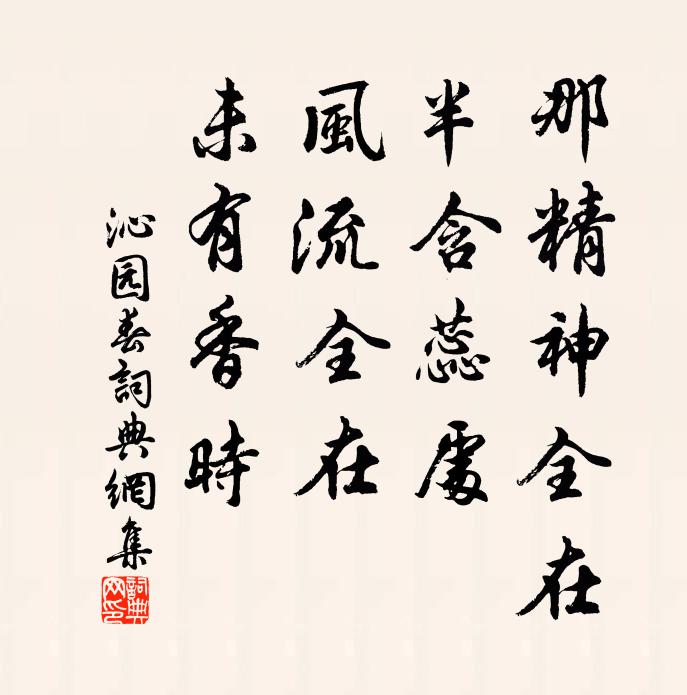 那精神全在
半含蕊處
風流全在
未有香時
沁园春詞典網集
詞典
网印